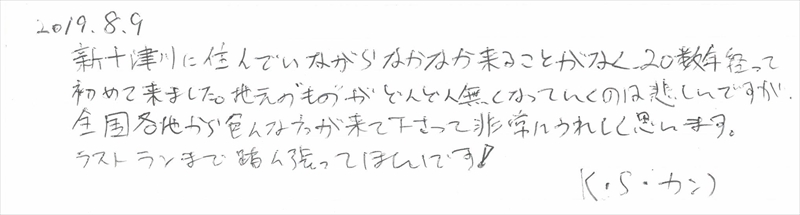 2019.8.9
新十津川に住んでいながらなかなか来ることがなく、20数年経って
初めて来ました。地元のものがどんどん無くなっていくのは悲しいですが、
全国各地から色んな方が来て下さって非常にうれしく思います。
ラストランまで踏ん張ってほしいです!
K・S・カン